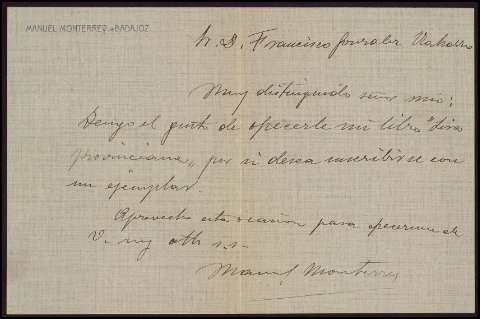 MANUEL MONTERREY = BADAJOZ
Sr. D. Francisco González
Muy distinguido señor mío:
Tengo el gusto de ofrecerle mi libro "Lira
provinciana", por si desea suscribirse con
un ejemplar.
Aprovecho esta ocasión para ofrecerme de
V. my atto s.s.
Manuel Monterrey